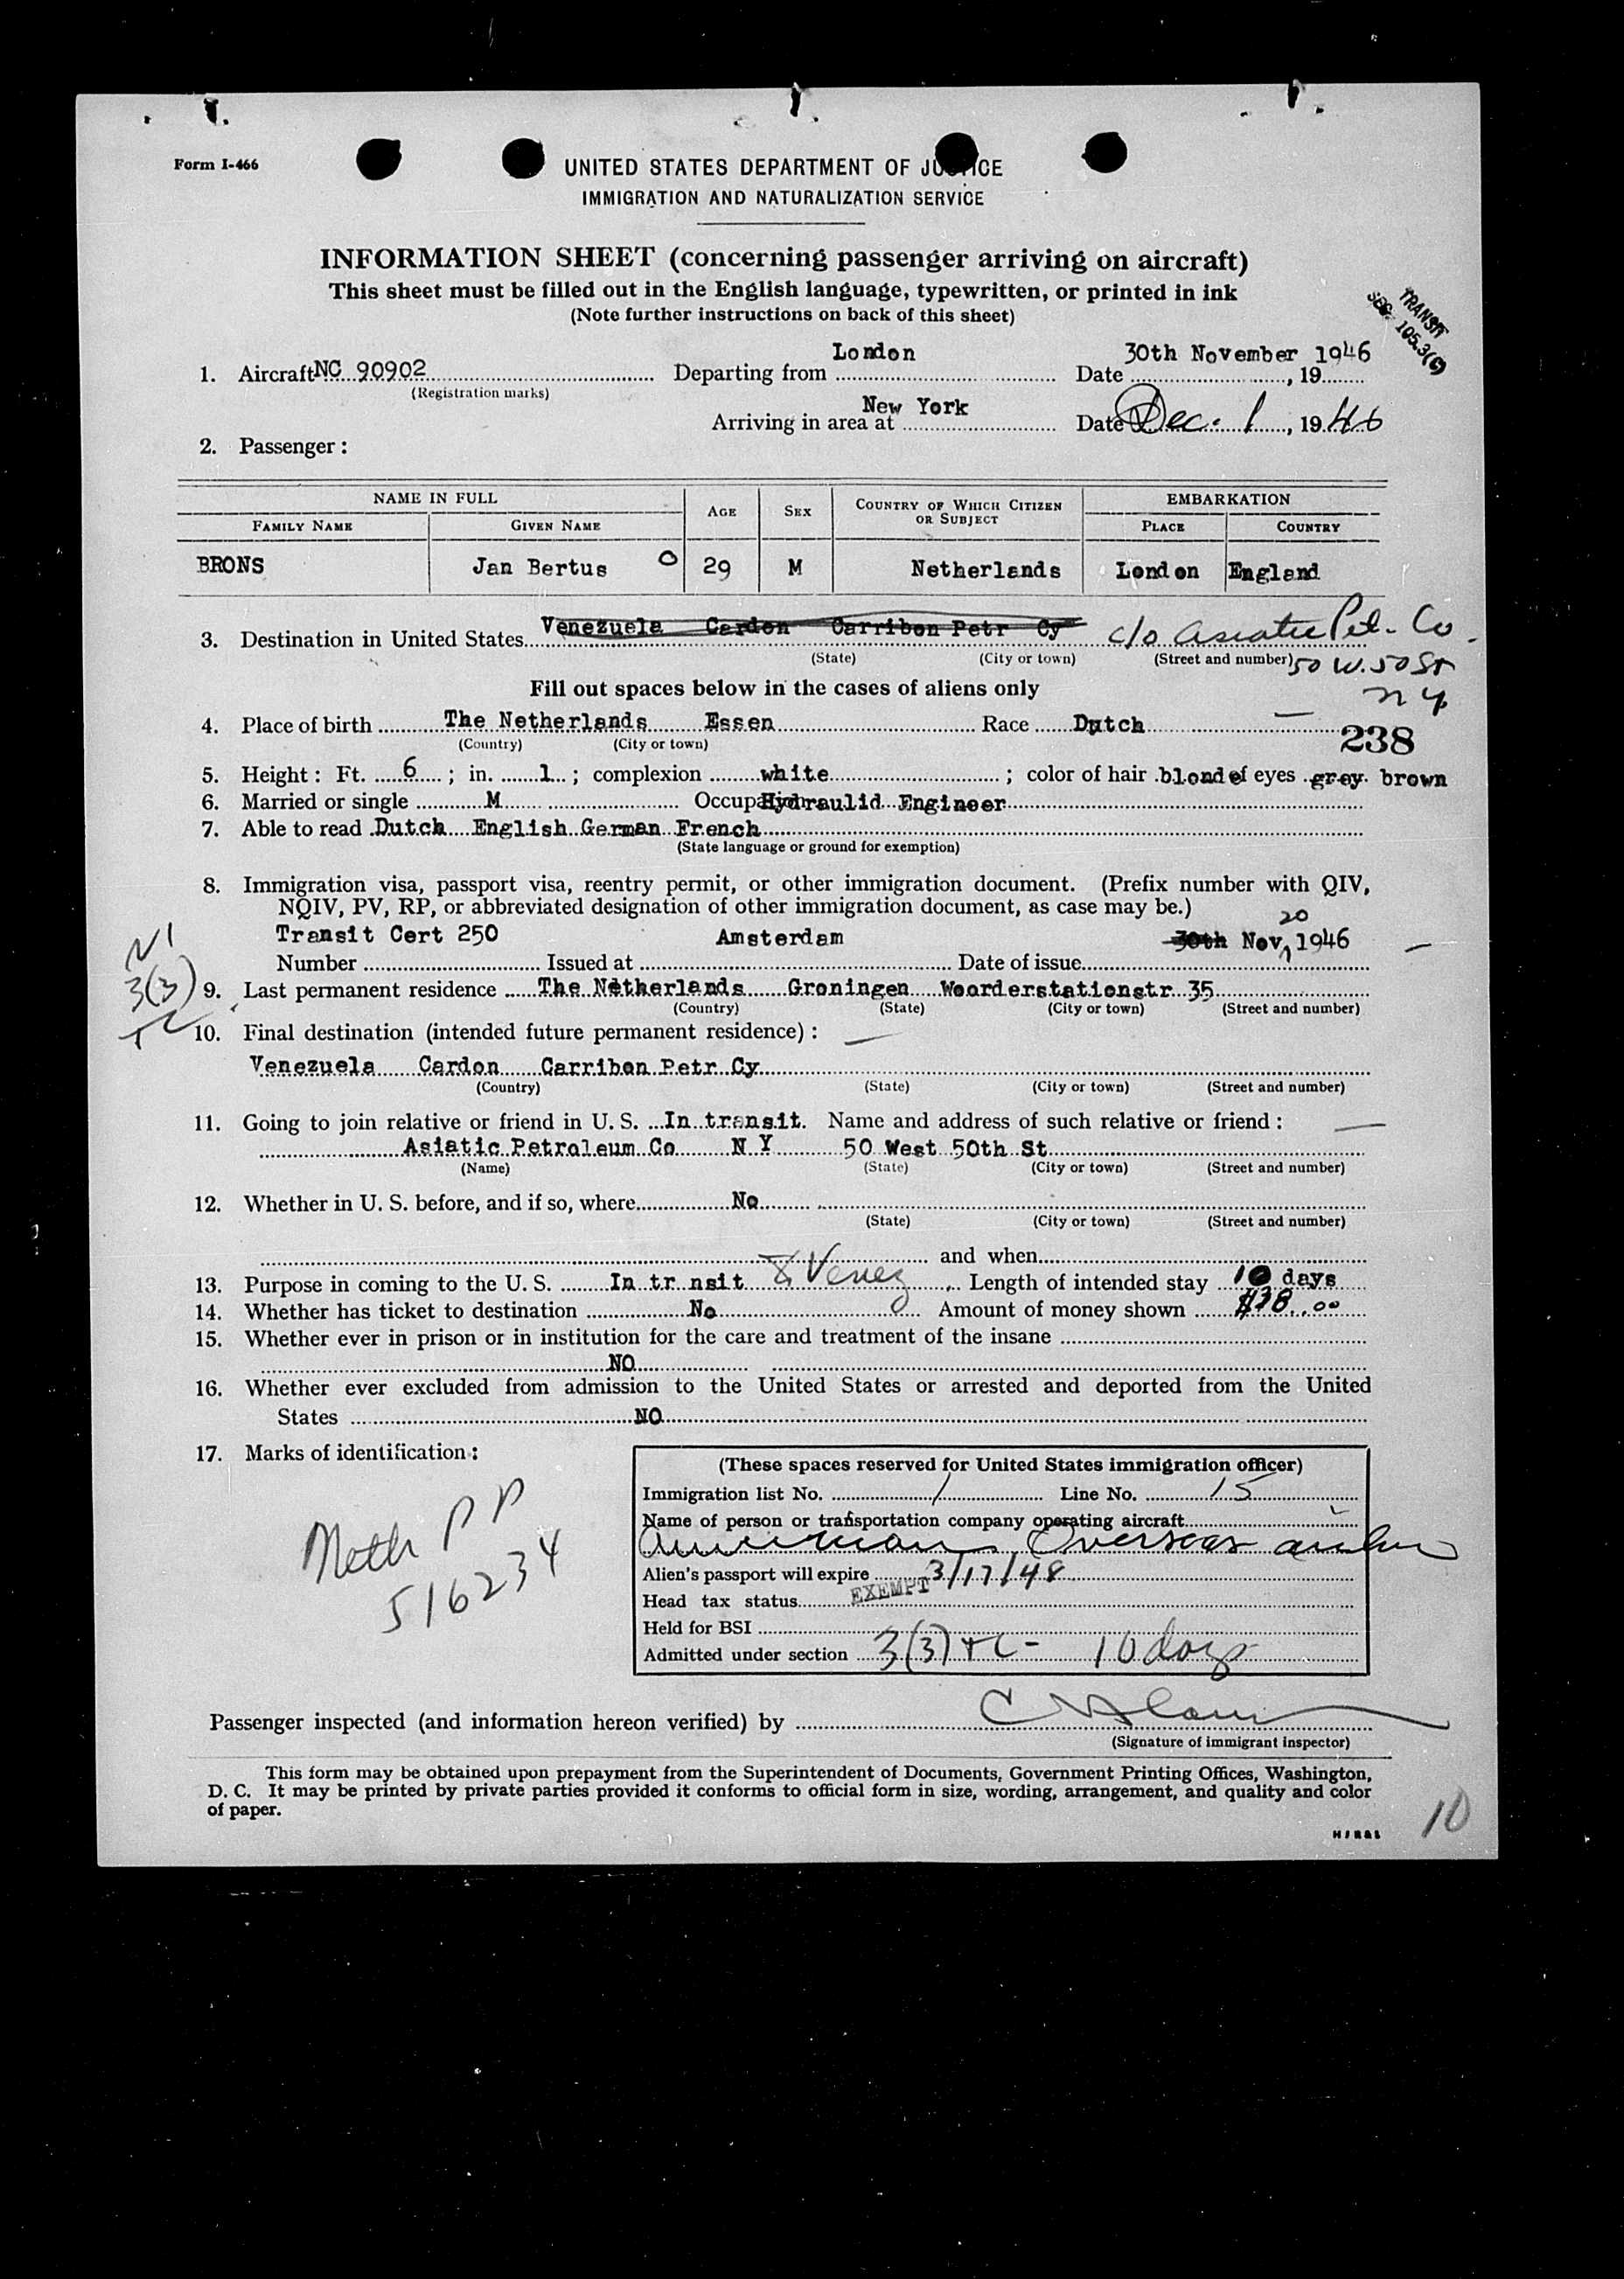 Form I-466
UNITED STATES DEPARTMENT OF JUSTICE
IMMIGRATION AND NATURALIZATION SERVICE
INFORMATION SHEET (concerning passenger arriving on aircraft)
This sheet must be filled out in the English language, typewritten, or printed in ink
(Note further instructions on back of this sheet)
TRANSIT
SEC. 105.3(c)
1. Aircraft NC 90902 Departing from London Date 30th November 1946, 19
(Registration marks)
Arriving in area at New York Date Dec. 1, 1946
2. Passenger:
NAME IN FULL AGE SEX COUNTRY OF WHICH CITIZEN OR SUBJECT EMBARKATION
FAMILY NAME GIVEN NAME PLACE COUNTRY
BRONS Jan Bertus 0 29 M Netherlands London England
3. Destination in United States Venezuela Cardon Carribon Petr Cy c/o Asiatic Pet. Co.
(State) (City or town) (Street and number) 50 W. 50 St
N Y
Fill out spaces below in the cases of aliens only
4. Place of birth The Netherlands Essen Race Dutch
(Country) (City or town)
238
5. Height: Ft. 6; in. 1; complexion white; color of hair blond of eyes grey brown
6. Married or single M Occupation Hydraulid Engineer
7. Able to read Dutch English German French
(State language or ground for exemption)
8. Immigration visa, passport visa, reentry permit, or other immigration document. (Prefix number with QIV,
NQIV, PV, RP, or abbreviated designation of other immigration document, as case may be.)
20
Transit Cert 250 Amsterdam 30th Nov, 1946
Number Issued at Date of issue
3(3)
9. Last permanent residence The Netherlands Groningen Woorderstationstr 35
(Country) (State) (City or town) (Street and number)
10. Final destination (intended future permanent residence):
Venezuela Cardon Carribon Petr Cy
(Country) (State) (City or town) (Street and number)
11. Going to join relative or friend in U. S. In transit. Name and address of such relative or friend:
Asiatic Petroleum Co N Y 50 West 50th St
(Name) (State) (City or town) (Street and number)
12. Whether in U. S. before, and if so, where No
(State) (City or town) (Street and number)
and when
13. Purpose in coming to the U. S. In tr nsit Venez Length of intended stay 10 days
14. Whether has ticket to destination No Amount of money shown $38.00
15. Whether ever in prison or in institution for the care and treatment of the insane
NO
16. Whether ever excluded from admission to the United States or arrested and deported from the United
States NO
17. Marks of identification:
Neth P P
516234
(These spaces reserved for United States immigration officer)
Immigration list No. 1 Line No. 15
Name of person or transportation company operating aircraft
American Overseas Airlines
Alien's passport will expire 3/17/48
Head tax status EXEMPT
Held for BSI
Admitted under section 3(3) TC - 10 days
Passenger inspected (and information hereon verified) by
(Signature of immigrant inspector)
This form may be obtained upon prepayment from the Superintendent of Documents, Government Printing Offices, Washington,
D. C. It may be printed by private parties provided it conforms to official form in size, wording, arrangement, and quality and color
of paper.
10